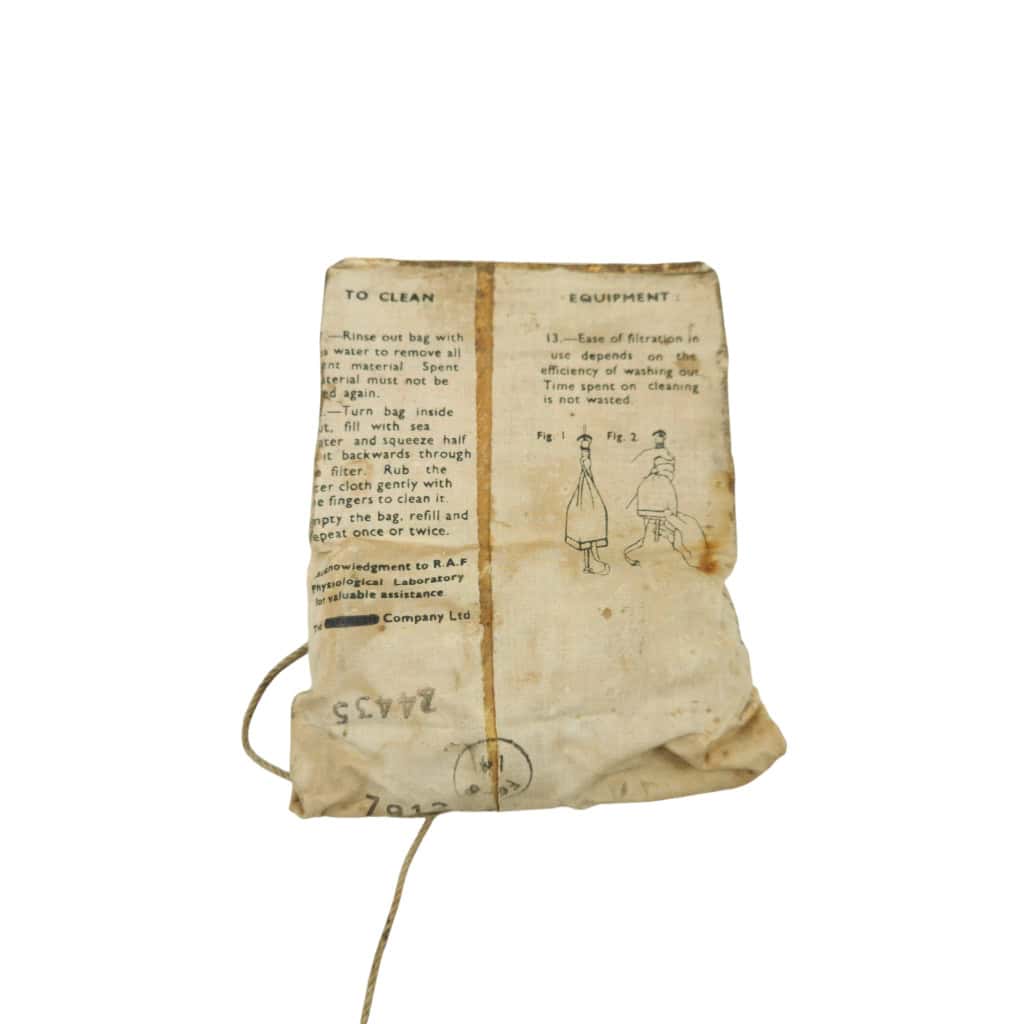 TO CLEAN
.—Rinse out bag with
water to remove all
material Spent
must not be
again.
.—Turn bag inside
fill with sea
and squeeze half
it backwards through
filter. Rub the
cloth gently with
fingers to clean it.
the bag, refill and
repeat once or twice.
acknowledgment to R.A.F
Physiological Laboratory
for valuable assistance.
Company Ltd
EQUIPMENT
13.—Ease of filtration in
use depends on the
efficiency of washing out.
Time spent on cleaning
is not wasted.
Fig. 1 Fig. 2.
24435